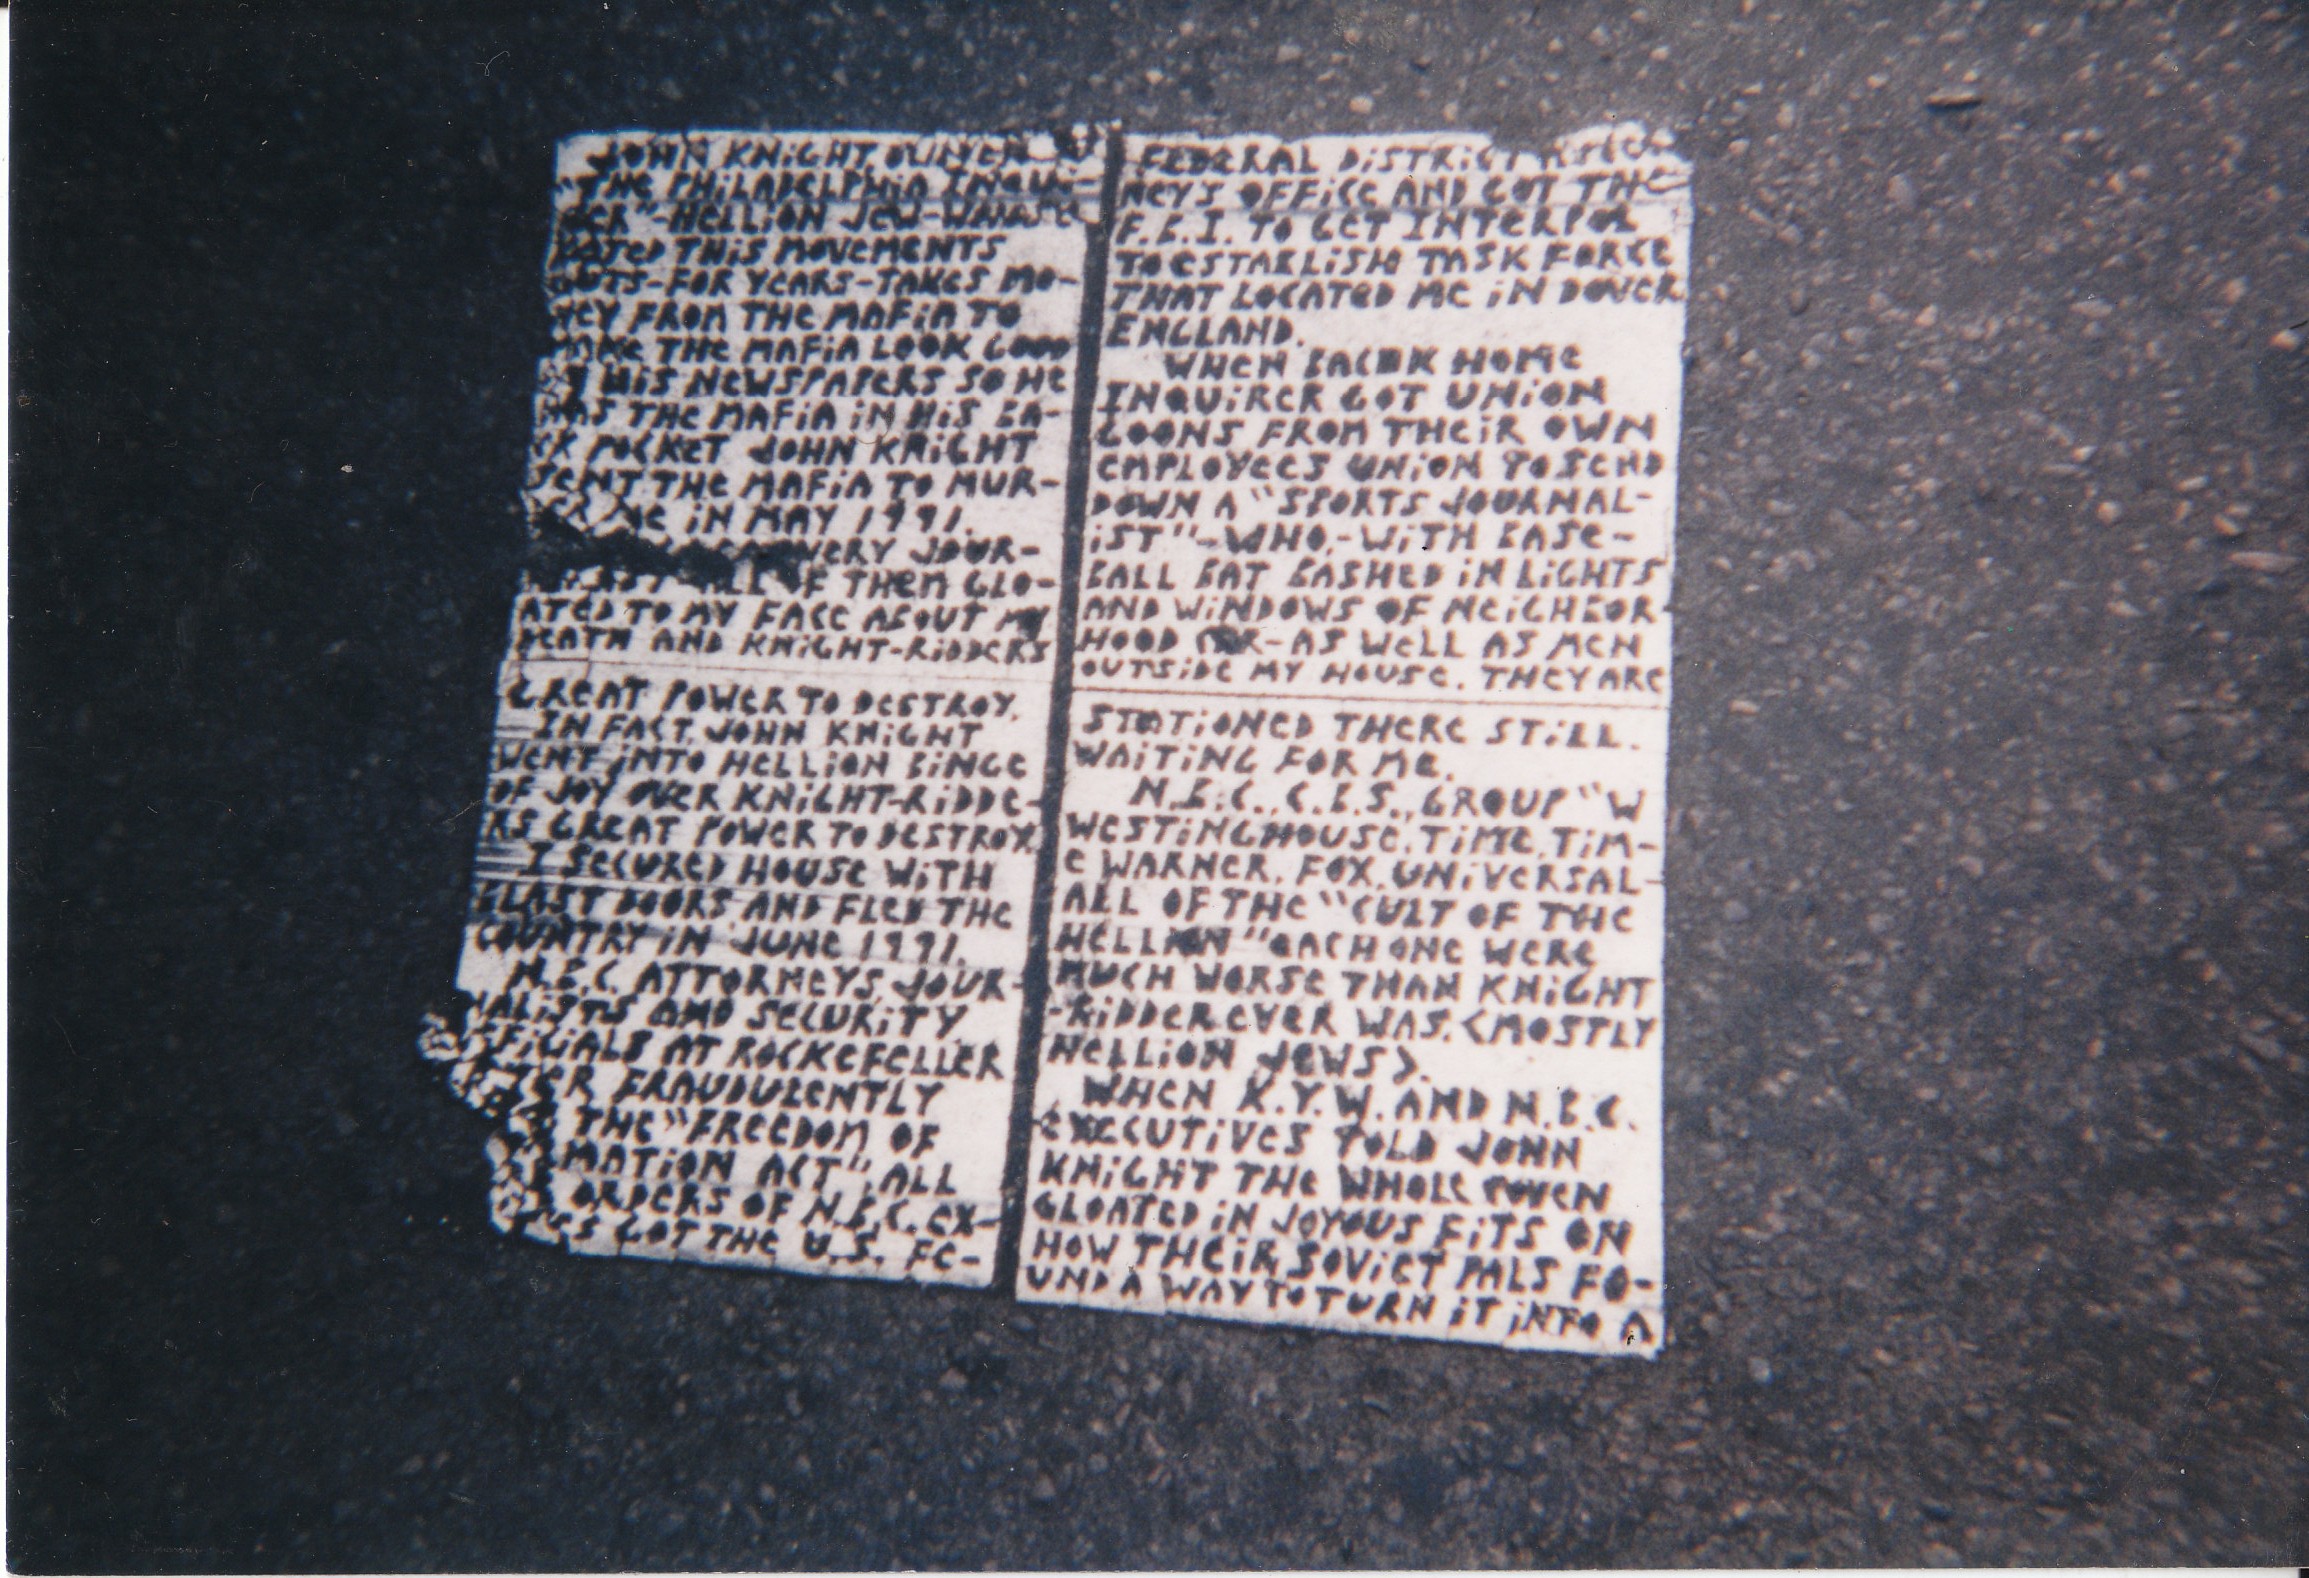 JOHN KNIGHT OWNER
"THE PHILADELPHIA INQUI-
RER"-HELLION JEW-
THIS MOVEMENTS
GUTS-FOR YEARS-TAKES MO-
NEY FROM THE MAFIA TO
MAKE THE MAFIA LOOK GOOD
HIS NEWSPAPERS SO HE
HAS THE MAFIA IN HIS BA-
CK POCKET JOHN KNIGHT
SENT THE MAFIA TO MUR-
ME IN MAY 1991.
VERY JOUR-
ALL OF THEM GLO-
ATED TO MY FACE ABOUT MY
DEATH AND KNIGHT-RIDDERS
GREAT POWER TO DESTROY.
IN FACT, JOHN KNIGHT
WENT INTO HELLION BINGE
OF JOY OVER KNIGHT-RIDDE-
RS GREAT POWER TO DESTROY.
I SECURED HOUSE WITH
BLAST DOORS AND FLED THE
COUNTRY IN JUNE 1991.
N.B.C. ATTORNEYS, JOUR-
NALISTS AND SECURITY
OFFICIALS AT ROCKEFELLER
FRAUDULENTLY
THE "FREEDOM OF
MATION ACT", ALL
ORDERS OF N.B.C. EX-
GOT THE U.S. FE-
FEDERAL DISTRICT
NEYS OFFICE AND GOT THE
F.B.I. TO GET INTERPOL
TO ESTABLISH TASK FORCE
THAT LOCATED ME IN DOVER
ENGLAND.
WHEN BACK HOME
INQUIRER GOT UNION
GOONS FROM THEIR OWN
EMPLOYEES UNION TO SEND
DOWN A "SPORTS JOURNAL-
IST"-WHO,-WITH BASE-
BALL BAT BASHED IN LIGHTS
AND WINDOWS OF NEIGHBOR-
HOOD CAR-AS WELL AS MEN
OUTSIDE MY HOUSE. THEY ARE
STATIONED THERE STILL.
WAITING FOR ME.
N.B.C., C.B.S., GROUP "W
WESTINGHOUSE, TIME, TIM-
E WARNER, FOX, UNIVERSAL-
ALL OF THE "CULT OF THE
HELLION" EACH ONE WERE
MUCH WORSE THAN KNIGHT
-RIDDER EVER WAS. <MOSTLY
HELLION JEWS>.
WHEN K.Y.W. AND N.B.C.
EXECUTIVES TOLD JOHN
KNIGHT THE WHOLE COVEN
GLOATED IN JOYOUS FITS ON
HOW THEIR SOVIET PALS FO-
UND A WAY TO TURN IT INTO A